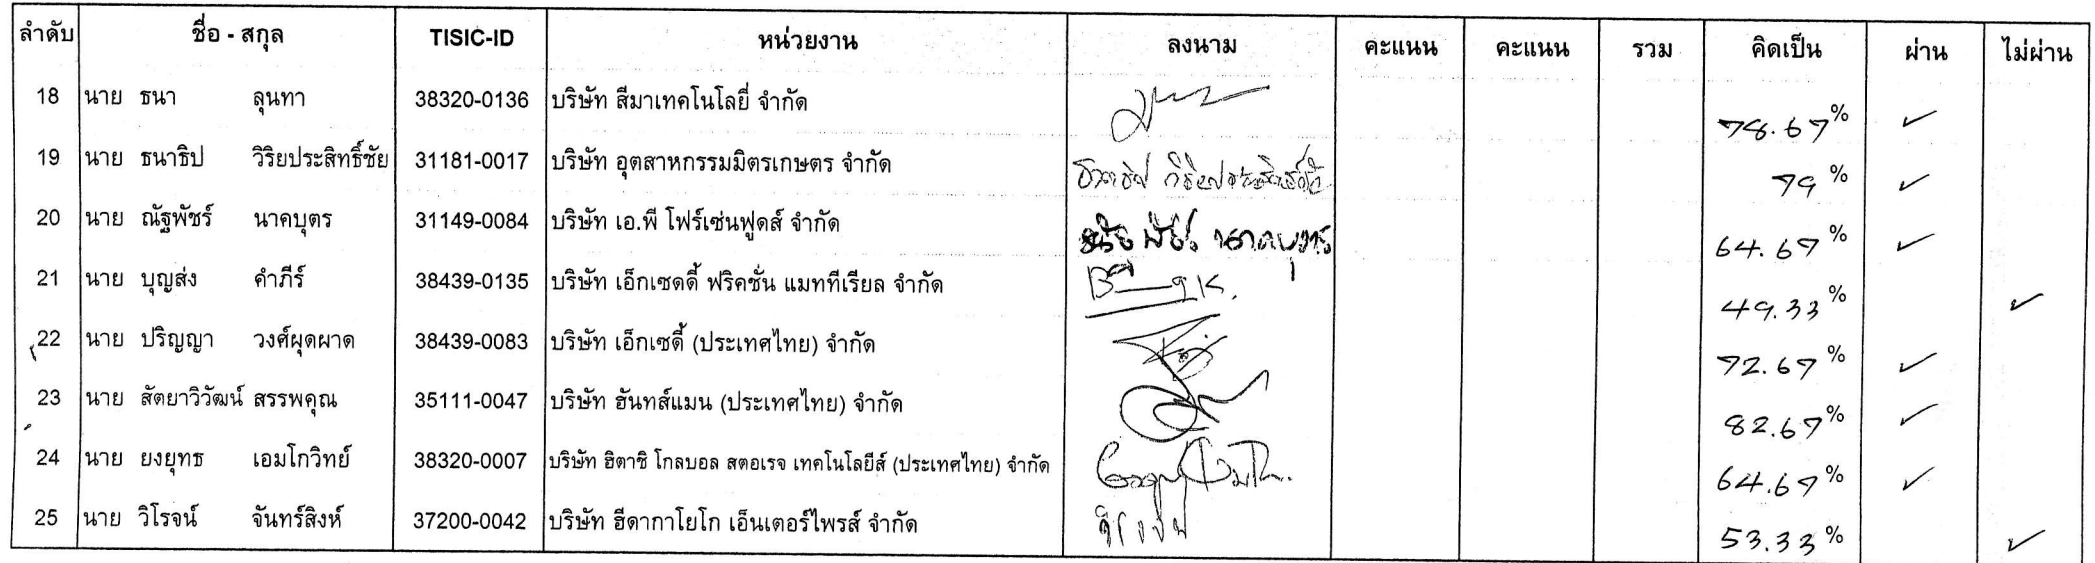 ลำดับ ชื่อ - สกุล TISIC-ID หน่วยงาน ลงนาม คะแนน คะแนน รวม คิดเป็น ผ่าน ไม่ผ่าน
18 นาย ธนา ลุนทา 38320-0136 บริษัท สีมาเทคโนโลยี่ จำกัด 78.67% ✓
19 นาย ธนาธิป วิริยประสิทธิ์ชัย 31181-0017 บริษัท อุตสาหกรรมมิตรเกษตร จำกัด ธนาธิป วิริยประสิทธิ์ชัย 79 % ✓
20 นาย ณัฐพัชร์ นาคบุตร 31149-0084 บริษัท เอ.พี โฟร์เซ่นฟูดส์ จำกัด ณัฐพัชร์ นาคบุตร 64.67 % ✓
21 นาย บุญส่ง คำภีร์ 38439-0135 บริษัท เอ็กเซดดี้ ฟริคชั่น แมททีเรียล จำกัด 49.33 % ✓
22 นาย ปริญญา วงศ์ผุดผาด 38439-0083 บริษัท เอ็กเซดี้ (ประเทศไทย) จำกัด 72.67 % ✓
23 นาย สัตยาวิวัฒน์ สรรพคุณ 35111-0047 บริษัท ฮันทส์แมน (ประเทศไทย) จำกัด 82.67% ✓
24 นาย ยงยุทธ เอมโกวิทย์ 38320-0007 บริษัท ฮิตาชิ โกลบอล สตอเรจ เทคโนโลยีส์ (ประเทศไทย) จำกัด 64.67% ✓
25 นาย วิโรจน์ จันทร์สิงห์ 37200-0042 บริษัท ฮีดากาโยโก เอ็นเตอร์ไพรส์ จำกัด วิโรจน์ 53.33 % ✓